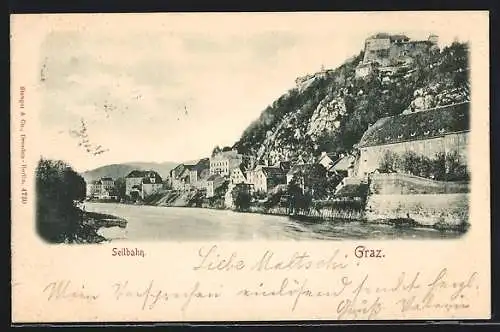 Stengel & Co., Dresden-Berlin. 4759
Seilbahn.
Graz.
Liebe
Mein Versprechen einlösend sendet herzl.
Gruß Valerie